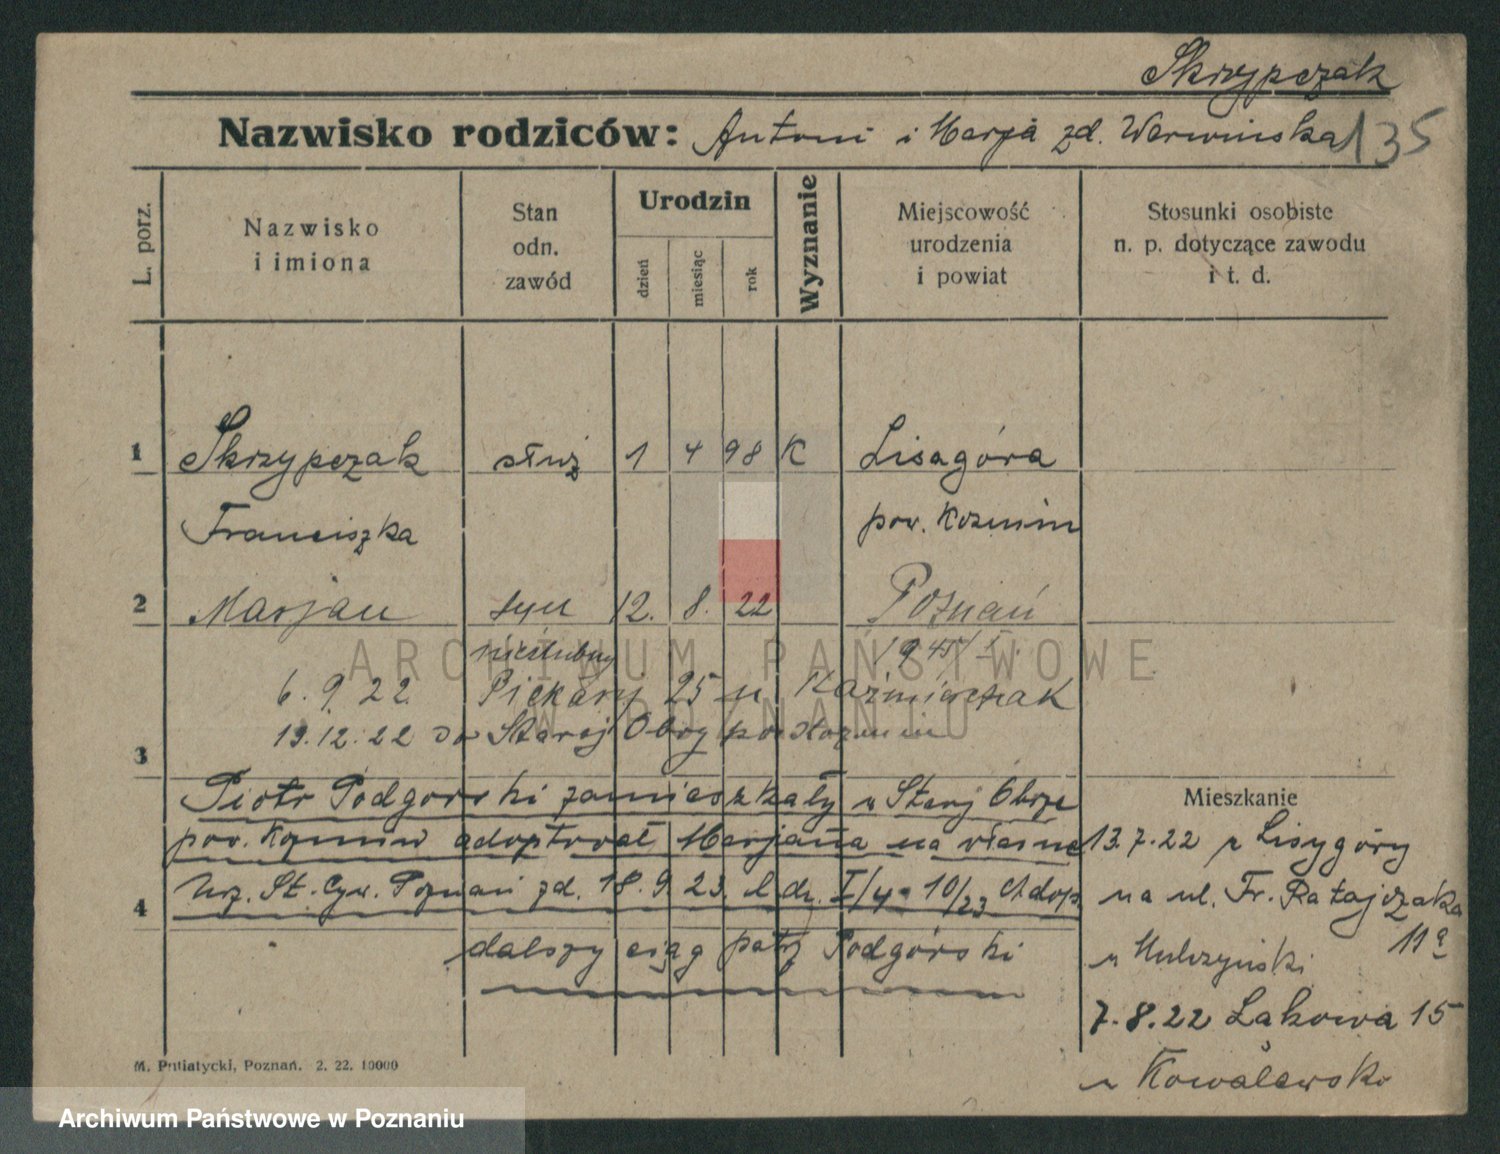 Skrzypczak
Nazwisko rodziców: Antoni i Marja zd. Werwinska 135
L. porz.
Nazwisko
i imiona
Stan
odn.
zawód
Urodzin
dzień
miesiąc
rok
Wyznanie
Miejscowość
urodzenia
i powiat
Stosunki osobiste
n. p. dotyczące zawodu
i t. d.
1 Skrzypczak służ 1 4 98 K Lisagóra
Franciszka pow. Kozmin
2 Marjan syn 12. 8. 22 Poznań
nieślubny
ARCHIWUM PAŃSTWOWE
W POZNANIU
6. 9. 22. Piekary 25 u Kaźmierczak
19.12.22 do Starej Obry
3
Piotr Podgórski zamieszkały w Starej Obrze
pow. Kozmin adoptował Marjana na własne
Urz. St. Cyw. Poznań zd. 18. 9. 23. l. dz. I/4 10/23
4
dalszy ciąg patrz Podgórski
Mieszkanie
13.7.22 z Lisygóry
na ul. Fr. Ratajczaka
11a
u
7.8.22 Łąkowa 15
u Kowalewsko
M. Putiatycki, Poznań. 2. 22. 10000
Archiwum Państwowe w Poznaniu